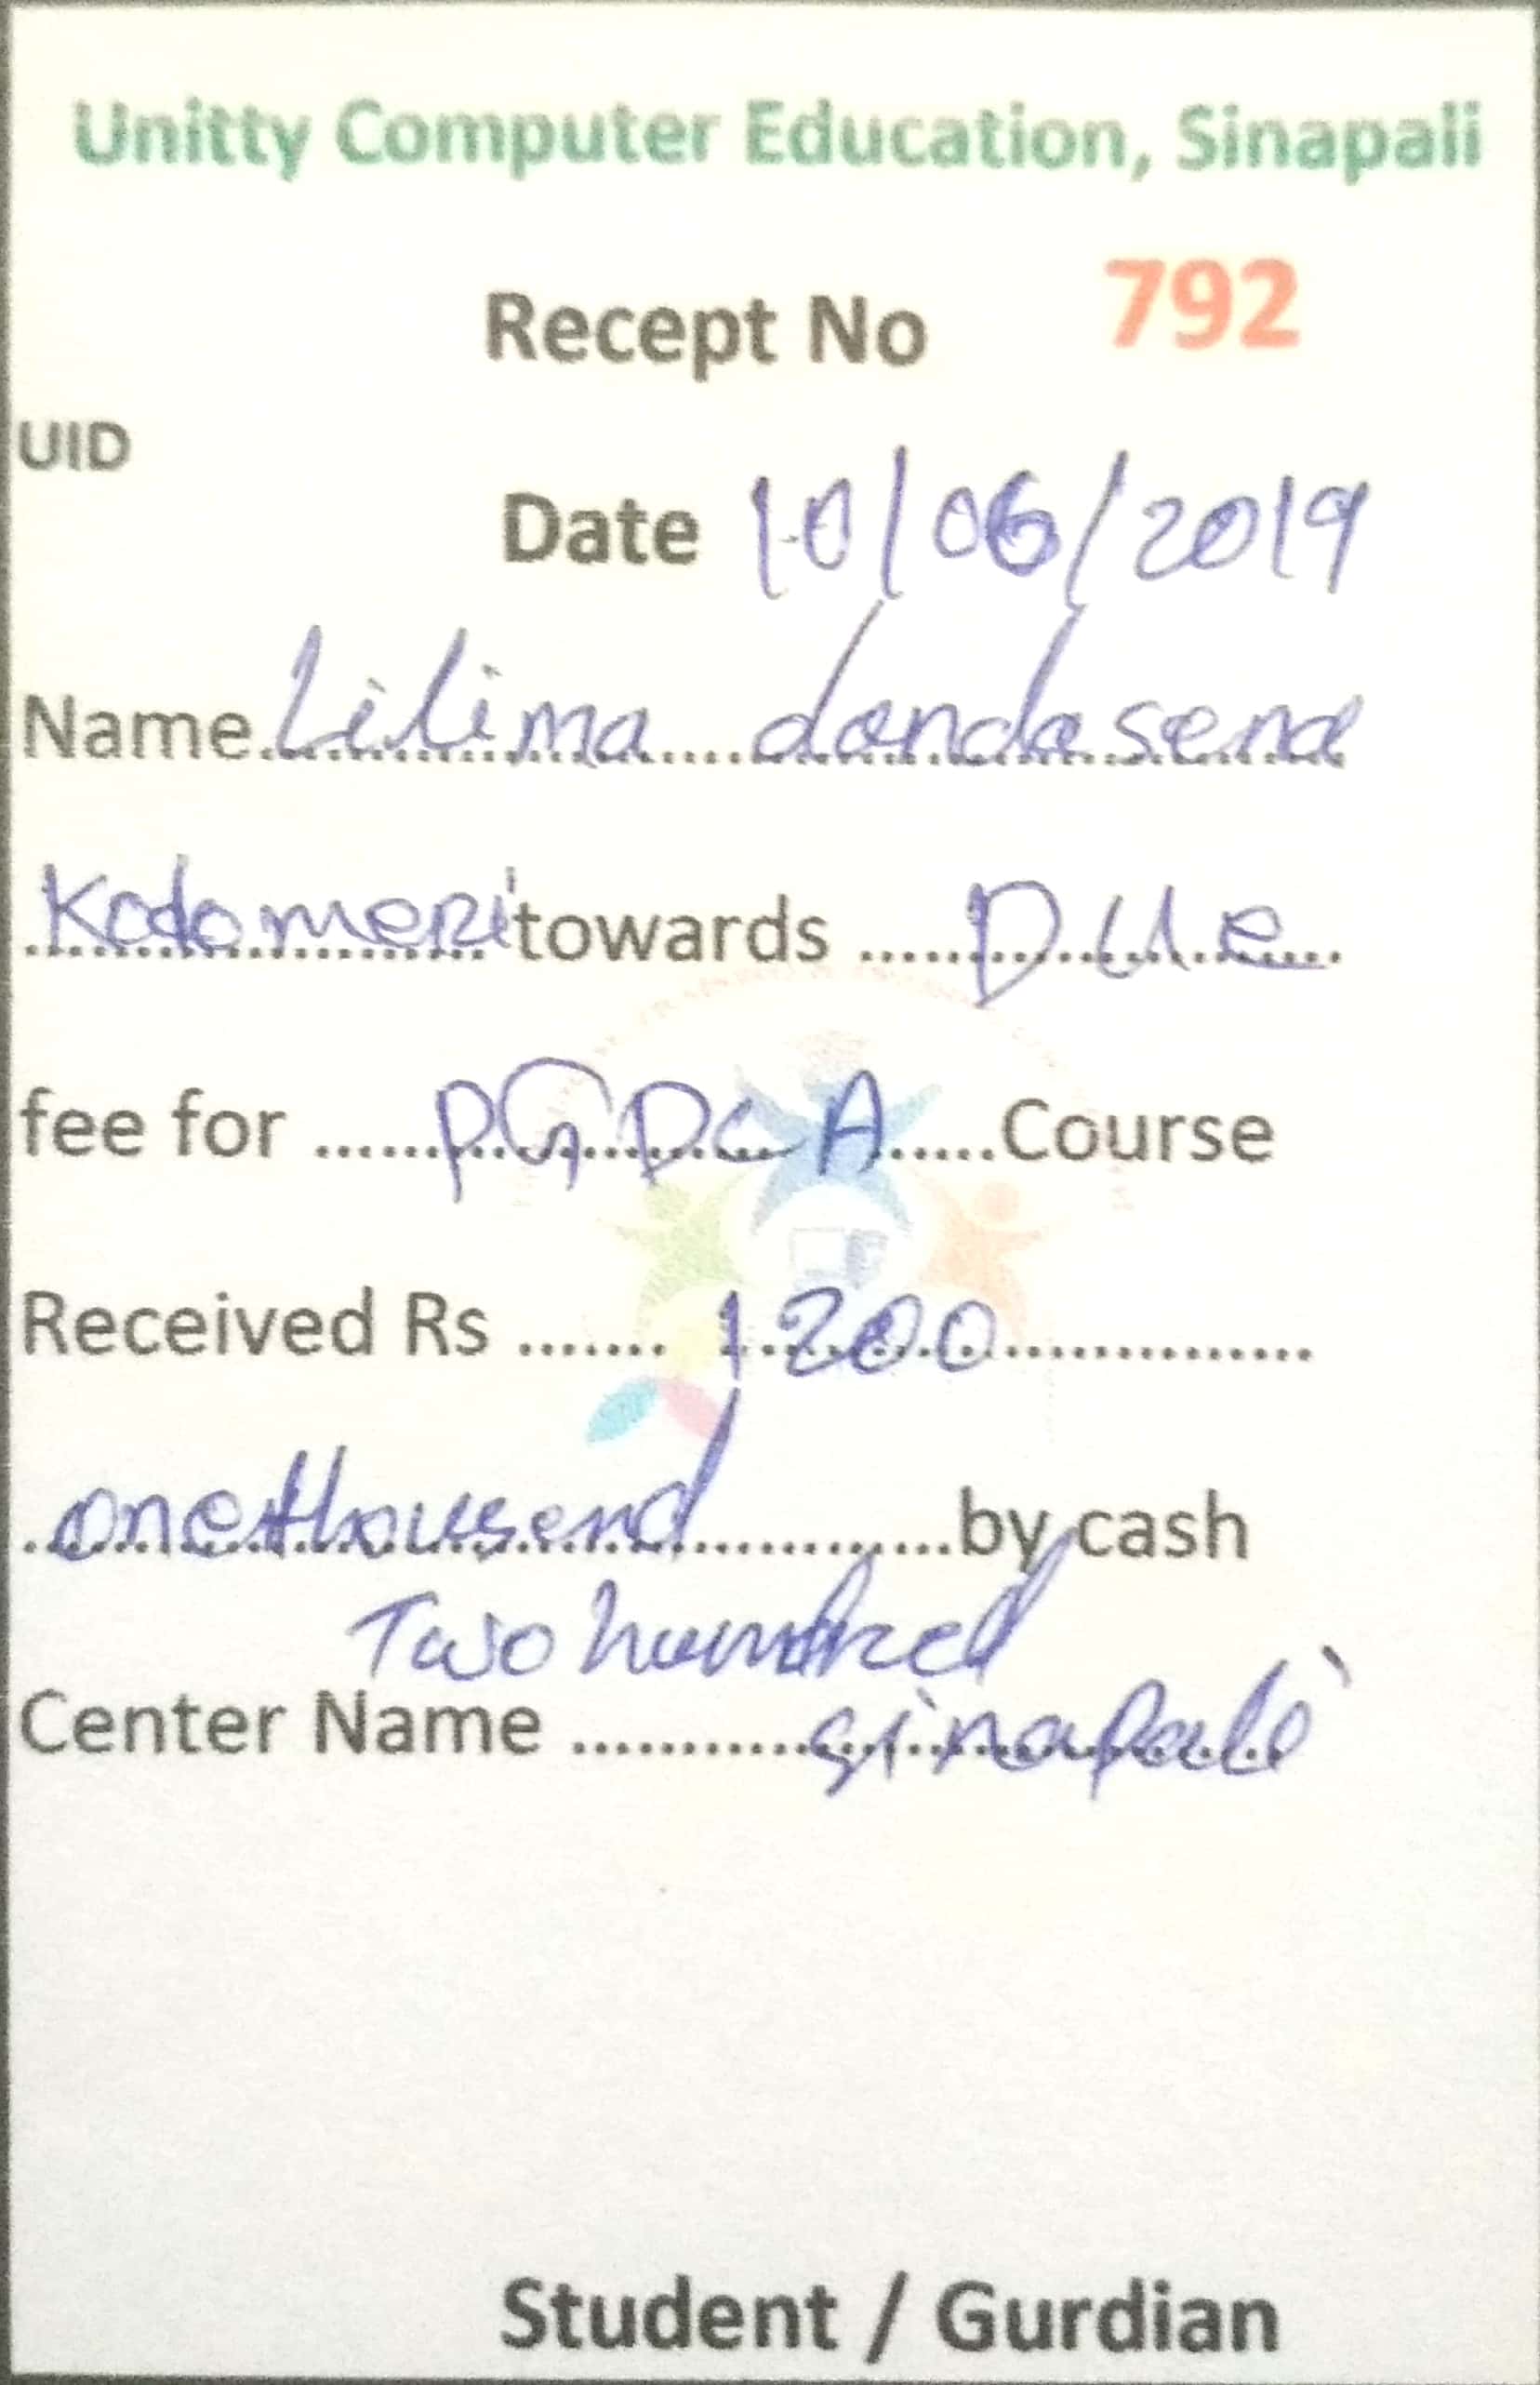 Unitty Computer Education, Sinapali
Recept No 792
UID
Date 10/06/2019
Name Lilima dandasena
Kodomeri towards ..... Due
fee for ...... PGDCA ..... Course
Received Rs ....... 1200 ..............
one thousend .............. by cash
Two hundred
Center Name ............ sinapali
Student / Gurdian